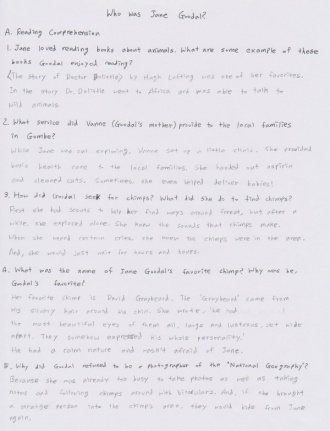 Who was Jane Goodal?
A. Reading Comprehension
1. Jane loved reading books about animals. What are some example of these
books Goodal enjoyed reading?
The story of Doctor Dolittle) by Hugh Lofting was one of her favorites.
In the story Dr. Dolittle went to Africa and was able to talk to
wild animals.
2. What service did Vanne (Goodal's mother) provide to the local families
in Gombe?
While Jane was out exploring, Vanne set up a little clinic. She provided
basic health care to the local families. She handed out aspirin
and cleaned cuts. Sometimes, she even helped deliver babies!
3. How did Goodal seek for chimps? What did she do to find chimps?
First she had scouts to help her find ways around forest, but after a
while, she explored alone. She knew the sounds that chimps make.
When she heard certain cries, she knew the chimps were in the area.
And, she would just wait for hours and hours.
4. What was the name of Jane Goodal's favorite chimp? Why was he,
Goodal's favorite?
Her favorite chimp is David Greybeard. The 'Greybeard' came from
his hair around his chin. She wrote, 'he had
the most beautiful eyes of them all, large and lustrous, set wide
apart. They somehow expressed his whole personality.'
He had a calm nature and wasn't afraid of Jane.
5. Why did Goodal refused to be a photographer of the "National Geography"?
Because she was already too busy to take photos as well as taking
notes and following chimps around with binoculars. And, if she brought
a strange person into the chimp's area, they would hide from Jane
again.